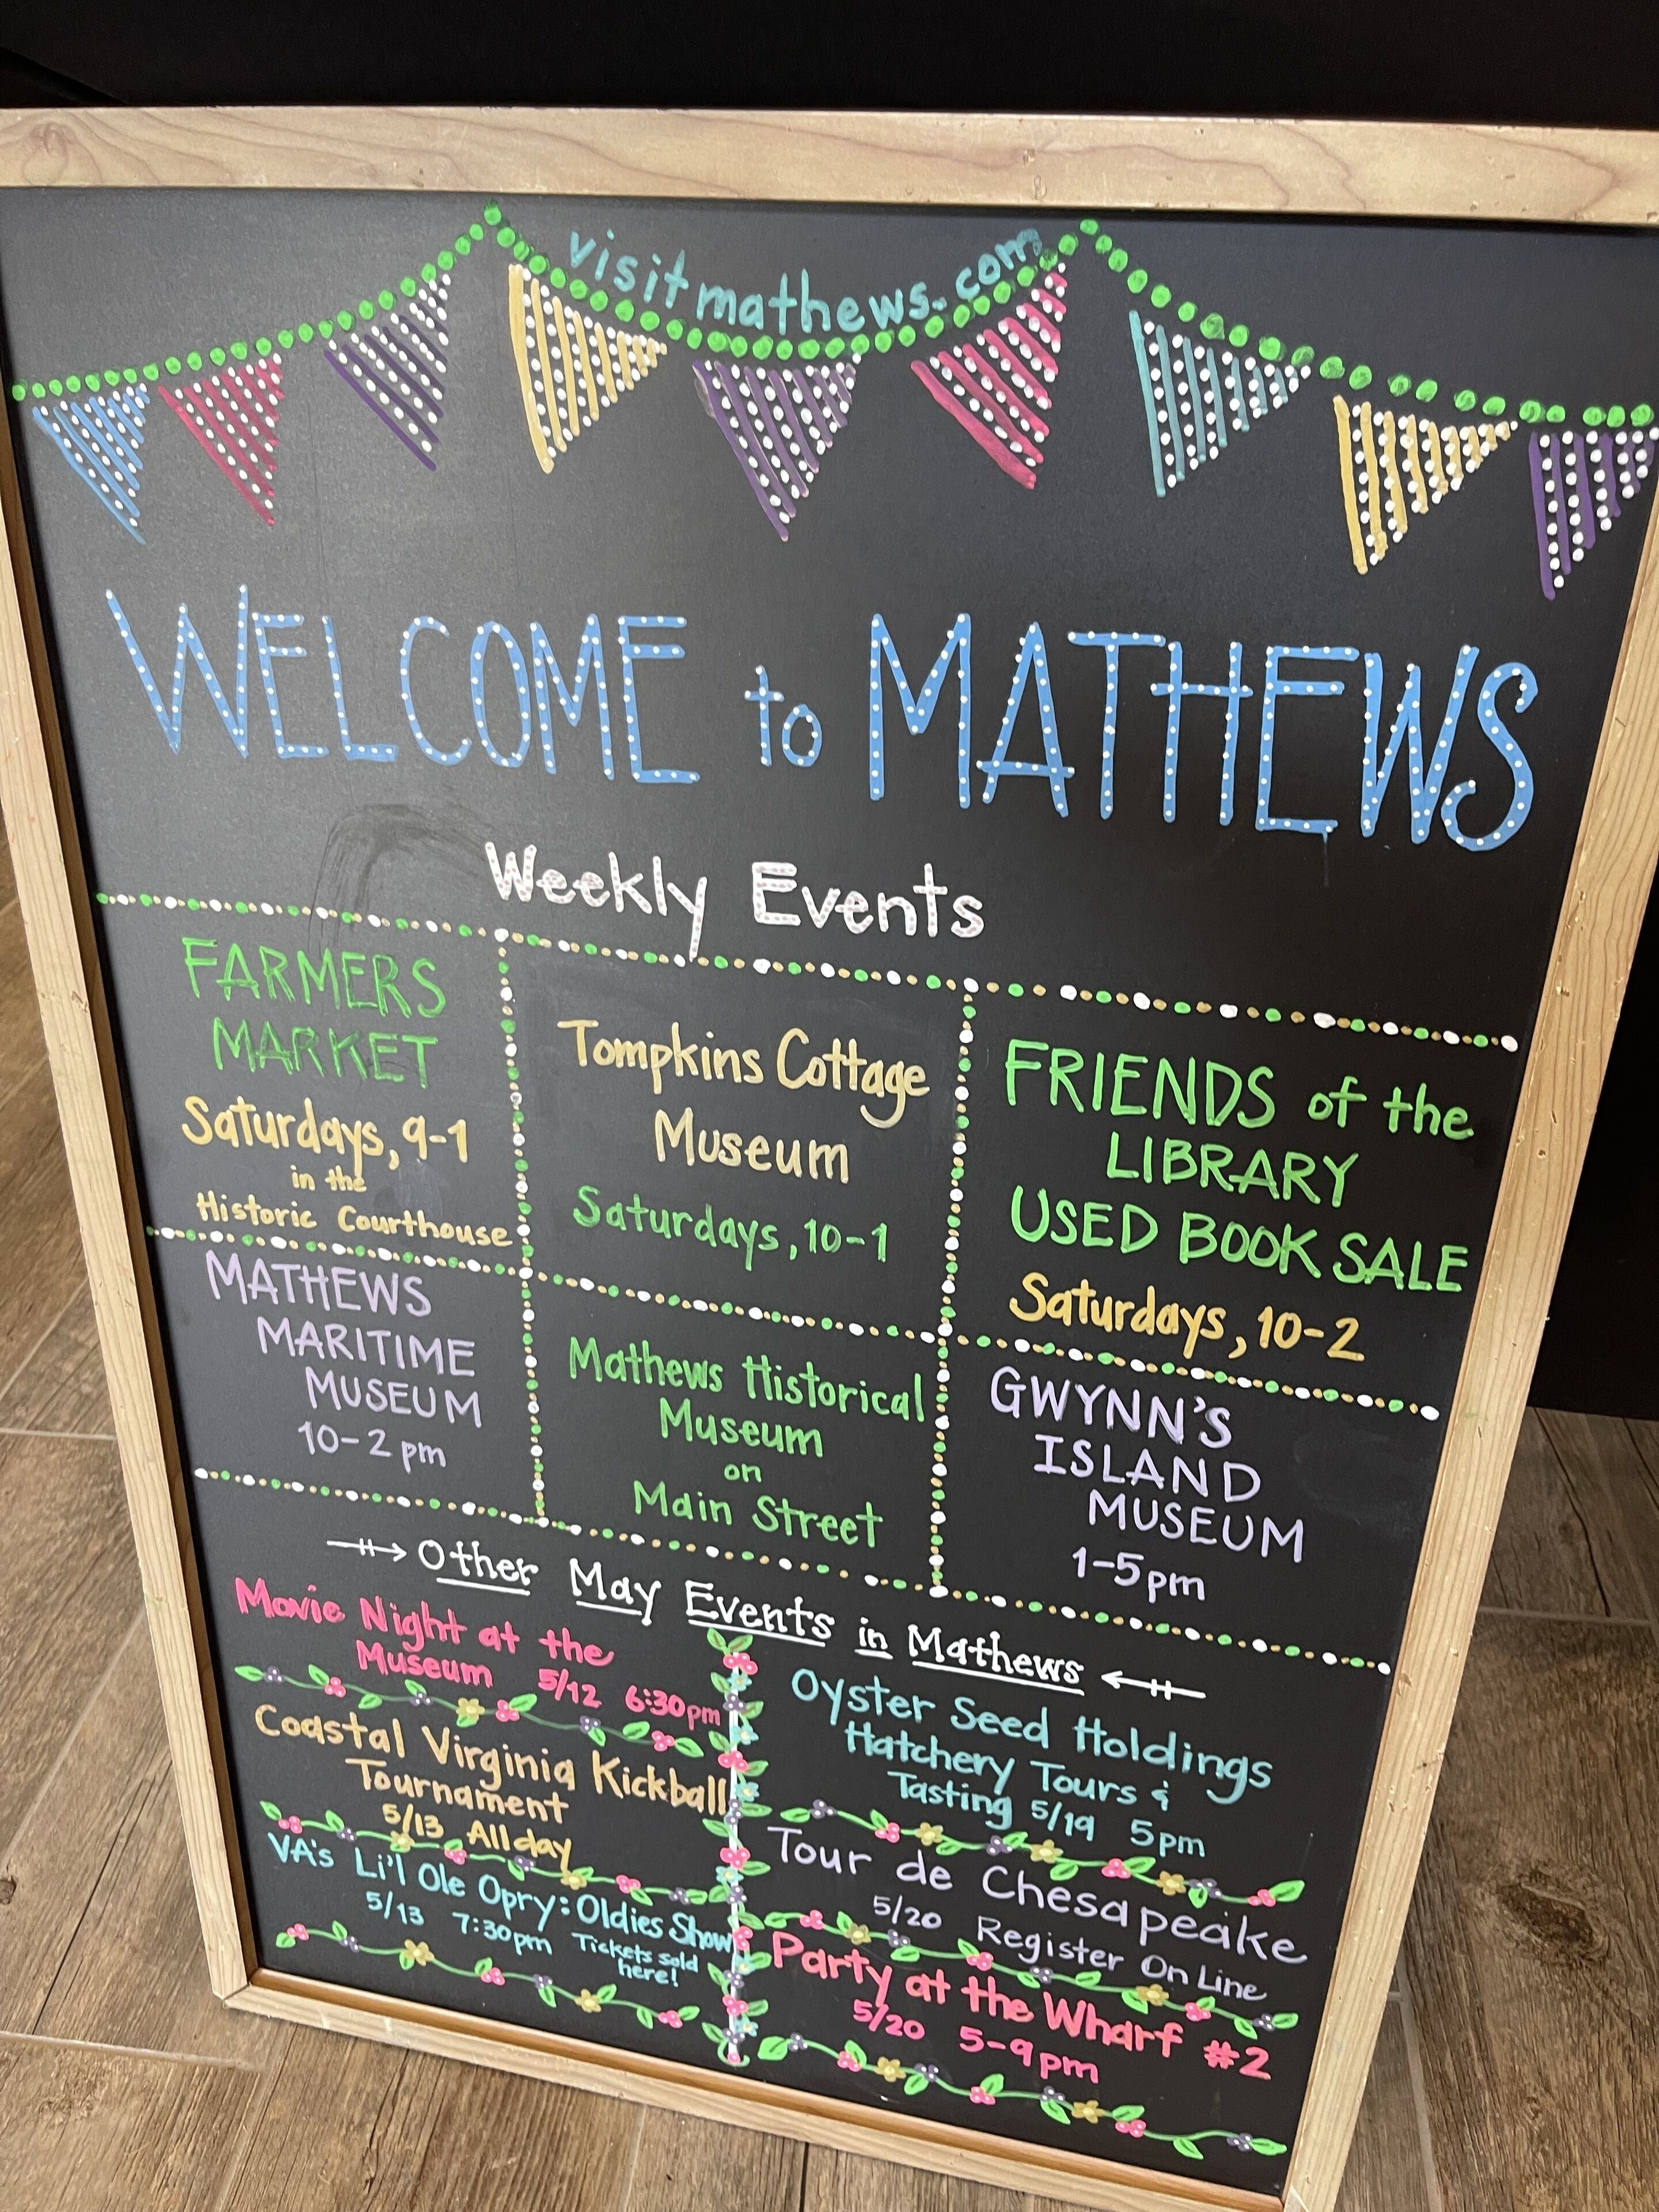 visitmathews.com
WELCOME to MATHEWS
Weekly Events
FARMERS
MARKET
Saturdays, 9-1
in the
Historic Courthouse
Tompkins Cottage
Museum
Saturdays, 10-1
FRIENDS of the
LIBRARY
USED BOOK SALE
Saturdays, 10-2
MATHEWS
MARITIME
MUSEUM
10-2 pm
Mathews Historical
Museum
on
Main Street
GWYNN'S
ISLAND
MUSEUM
1-5pm
Other May Events in Mathews
Movie Night at the
Museum 5/12 6:30pm
Coastal Virginia Kickball
Tournament
5/13 All day
VA's Li'l Ole Opry: Oldies Show
5/13 7:30pm Tickets sold
here!
Oyster Seed Holdings
Hatchery Tours &
Tasting 5/19 5pm
Tour de Chesapeake
5/20 Register On Line
Party at the Wharf #2
5/20 5-9pm